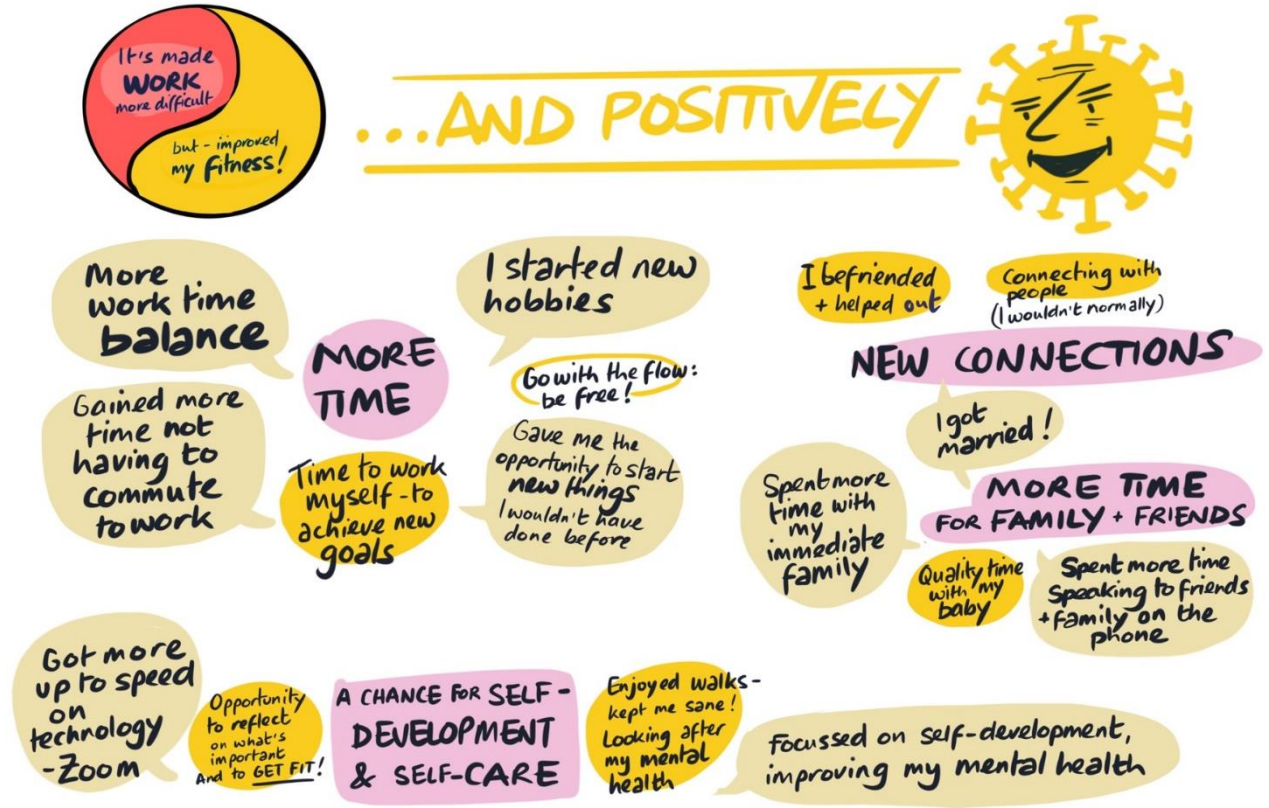 It's made
WORK
more difficult
but - improved
my fitness!
...AND POSITIVELY
More
work time
balance
I started new
hobbies
MORE
TIME
Go with the flow:
be free!
Gained more
time not
having to
commute
to work
Time to work
myself - to
achieve new
goals
Gave me the
opportunity to start
new things
I wouldn't have
done before
I befriended
+ helped out
Connecting with
people
(I wouldn't normally)
NEW CONNECTIONS
I got
married!
Spent more
time with
my
immediate
family
MORE TIME
FOR FAMILY + FRIENDS
Quality time
with my
baby
Spent more time
Speaking to friends
+ family on the
phone
Got more
up to speed
on
technology
- Zoom
Opportunity
to reflect
on what's
important
And to GET FIT!
A CHANCE FOR SELF -
DEVELOPMENT
& SELF-CARE
Enjoyed walks -
kept me sane!
Looking after
my mental
health
Focussed on self-development,
improving my mental health